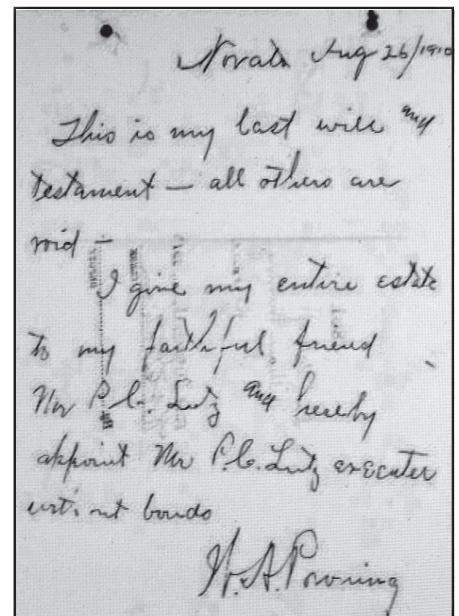 Novato Aug 26/1910
This is my last will and
testament — all others are
void —
I give my entire estate
to my faithful friend
Mr P.C. Lutz and hereby
appoint Mr P.C. Lutz executer
without bonds
W.A. Powning